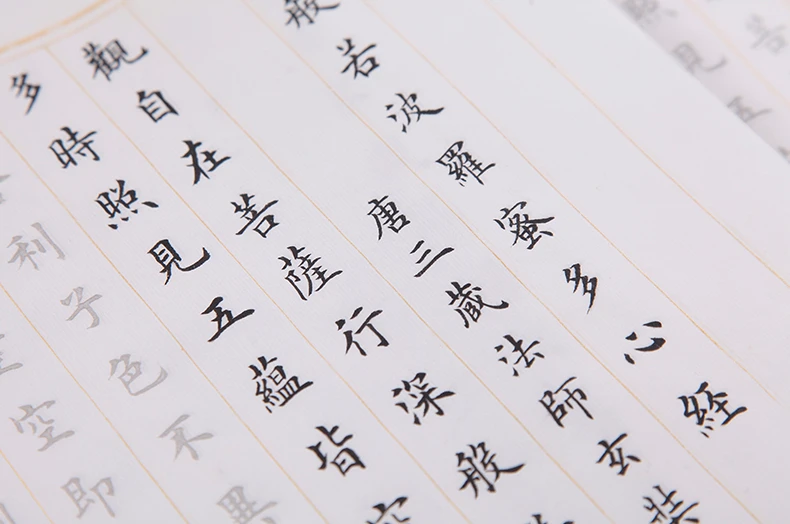 般若波羅蜜多心経
唐三蔵法師玄奘
觀自在菩薩行深般
多時照見五蘊皆空
利子色不異
空即
菩
照見五